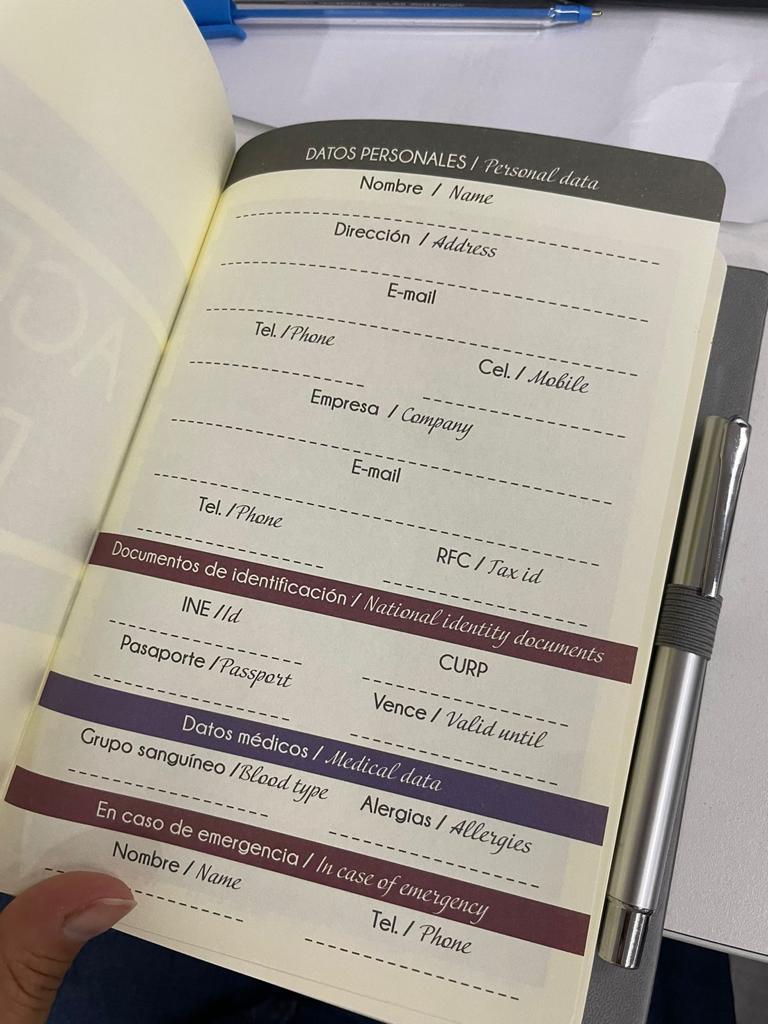 DATOS PERSONALES / Personal data
Nombre / Name
Dirección / Address
E-mail
Tel. / Phone
Cel. / Mobile
Empresa / Company
E-mail
Tel. / Phone
RFC / Tax id
Documentos de identificación / National identity documents
INE / Id
CURP
Pasaporte / Passport
Vence / Valid until
Datos médicos / Medical data
Grupo sanguíneo / Blood type
Alergias / Allergies
En caso de emergencia / In case of emergency
Nombre / Name
Tel. / Phone